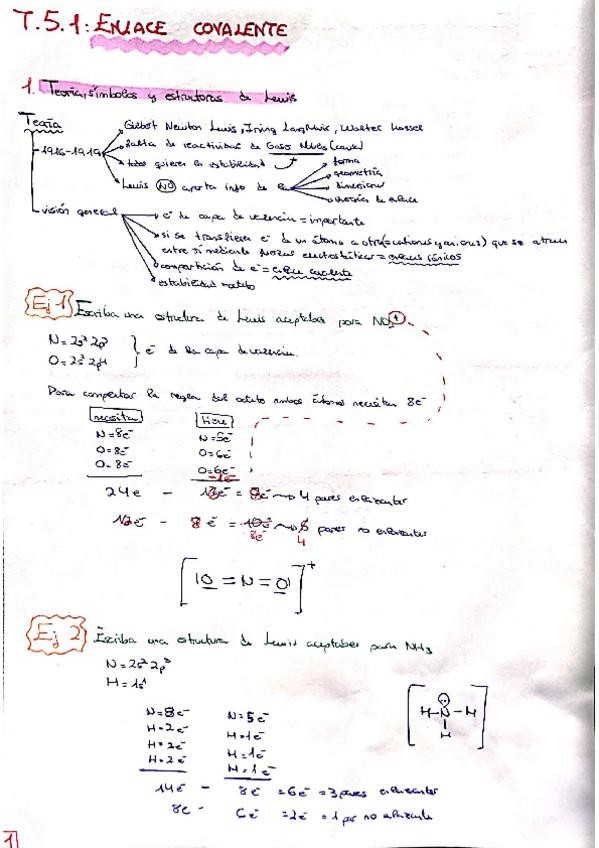 T.5.1: ENLACE COVALENTE
1. Teoría, símbolos y estructuras de Lewis
Teoría
1916-1919
Gilbert Newton Lewis, Irving Langmuir, Walter Kossel
falta de reactividad de Gases Nobles (causa)
todos quieren la estabilidad
Lewis NO aporta info de la
forma
geometría
dimensiones
energía de enlace
visión general
e⁻ de capa de valencia = importante
si se transfieren e⁻ de un átomo a otro (= cationes y aniones) que se atraen
entre sí mediante fuerzas electrostáticas = enlaces iónicos
compartición de e⁻ = enlace covalente
estabilidad
Ej 1 Escriba una estructura de Lewis aceptable para NO₂⁺
N = 2s² 2p³
O = 2s² 2p⁴
e⁻ de la capa de valencia.
Para completar la regla del octeto ambos átomos necesitan 8e⁻
necesitan tiene
N = 8e⁻ N = 5e⁻
O = 8e⁻ O = 6e⁻
O = 8e⁻ O = 6e⁻
-1e⁻
24e - 16e⁻ = 8e⁻ → 4 pares enlazantes
16e⁻ - 8e⁻ = 10e⁻ → pares no enlazantes
8e⁻ 4
[|O = N = O|]⁺
Ej 2 Escriba una estructura de Lewis aceptable para NH₃
N = 2s² 2p³
H = 1s¹
N = 8e⁻ N = 5e⁻
H = 2e⁻ H = 1e⁻
H = 2e⁻ H = 1e⁻
H = 2e⁻ H = 1e⁻
H - N - H
H
14e⁻ - 8e⁻ = 6e⁻ = 3 pares enlazantes
8e⁻ - 6e⁻ = 2e⁻ = 1 par no enlazante
1